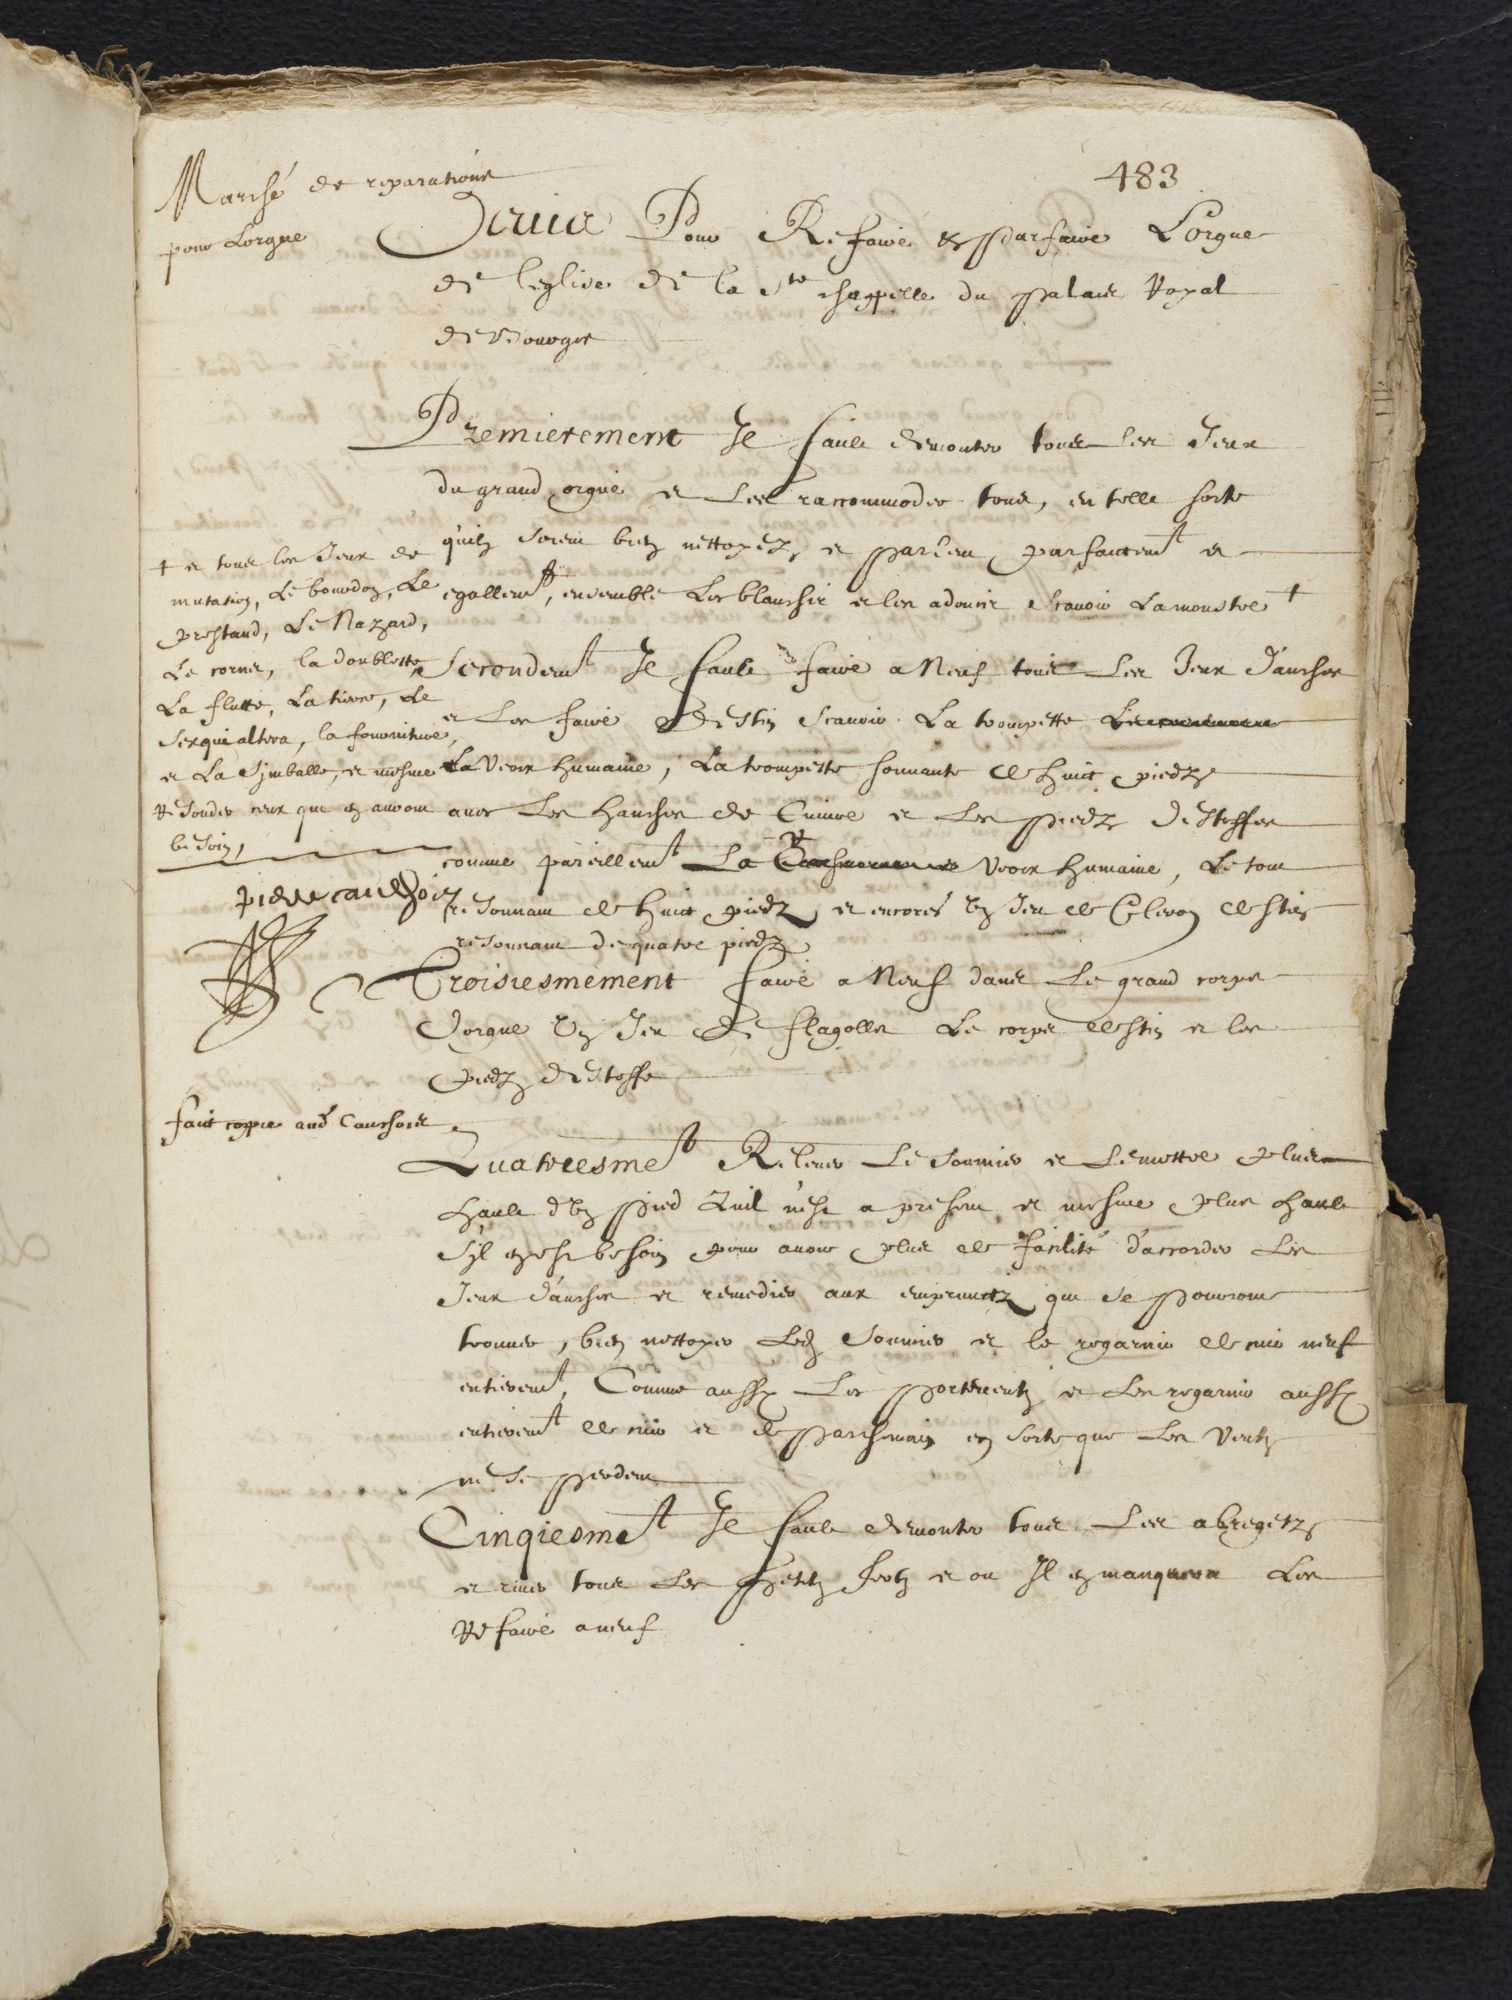 483
Marché de reparations
pour Lorgue
Devis Pour Refaire & parfaire Lorgue
de leglise de la Ste chappelle du palais Royal
de Bourges
Premierement Il fault demonter tous les Jeux
du grand orgue et Les raccommoder tous, en telle sorte
quilz soient bien nettoyez et parlent parfaictemt et
egallemt, ensemble Les blanchir et les adoucir scavoir La monstre +
+ et tous les Jeux de
mutation, Le bourdon, Le
prestand, Le Nazard,
Le cornet, la doublette
La flutte, La tierce, Le
sexquialtera, la fourniture,
et La Simballe, et mesme
Resouder ceux qui en auront
besoin,
pierre cauchois
Secondemt Il fault faire a Neuf tous Les Jeux d'anches
et Les faire d'Estin scavoir La trompette
La Veoix humaine, La trompette sonnante de huict piedz
avec Les hanches de Cuivre et Les piedz d'Estoffes
comme pareillemt La Veoix humaine, Le tout
resonnant de huict piedz et encores un Jeu de Cleron d'estin
resonnant de quatre piedz
Troisiesmement faire a Neuf dans Le grand corps
d'orgue un Jeu de flagolle Le corps destin et les
piedz d'Estoffe
fait coppie aud Cauchois
Quatriesmet Relever Le sommier et Le mettre plus
hault d'un pied Quil n'est a present et mesme plus hault
s'il en est besoin pour avoir plus de facilité d'accorder Les
Jeux d'anches et remedier aux empruntz qui se pourront
trouver, bien nettoyer Led sommier et le regarnir de cuir neuf
entieremt, Comme aussy Les portevents et Les regarnir aussy
entieremt de cuir et de parchemin en sorte que Les Vents
ne se perdent
Cinqiesmet Il fault demonter tous Les abregetz
et river tous Les petits ferts et ou Il en manquera Les
Refaire a neuf